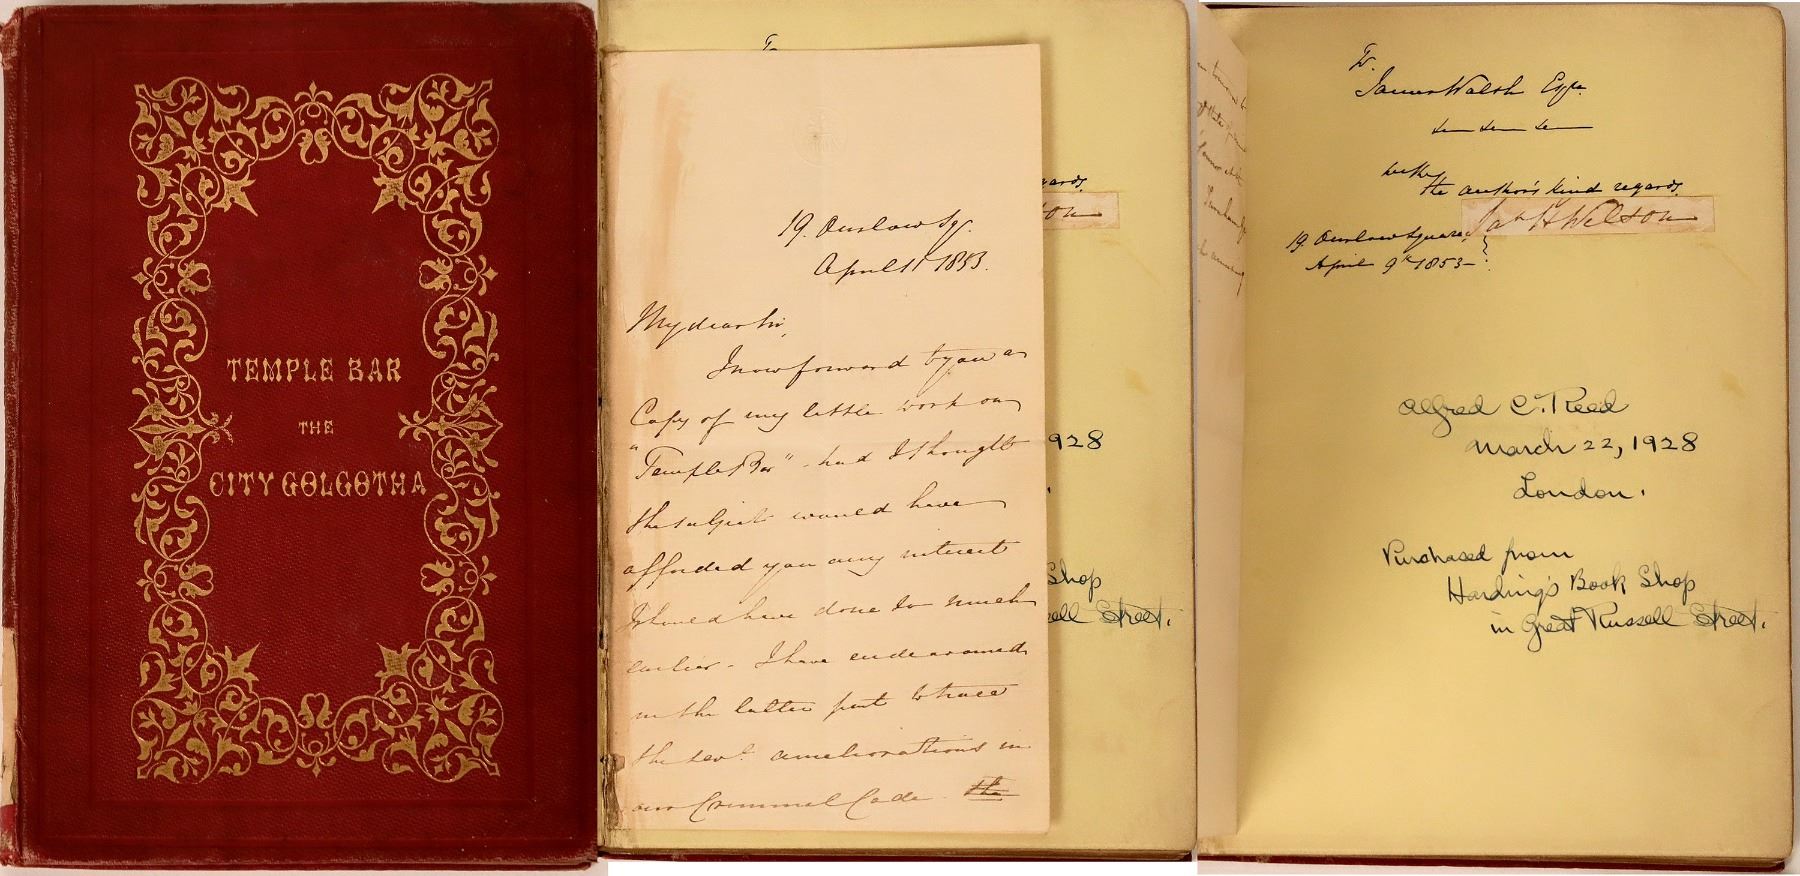 TEMPLE BAR
THE
CITY GOLGOTHA
19. Onslow Sqr.
April 11 1853.
My dear Sir,
I now forward to you a
Copy of my little work on
"Temple Bar" - had I thought
the subject would have
afforded you any interest
I should have done so much
earlier - I have endeavoured
in the latter part to trace
the sevl. ameliorations in
our Criminal Code - the
ards.
on
928
Shop
ell Street.
To
James Walsh Esqr.
with
the author's kind regards.
Jas. H Wilson
19 Onslow Square,
April 9th 1853-
Alfred C. Reed
March 22, 1928
London.
Purchased from
Harding's Book Shop
in Great Russell Street.